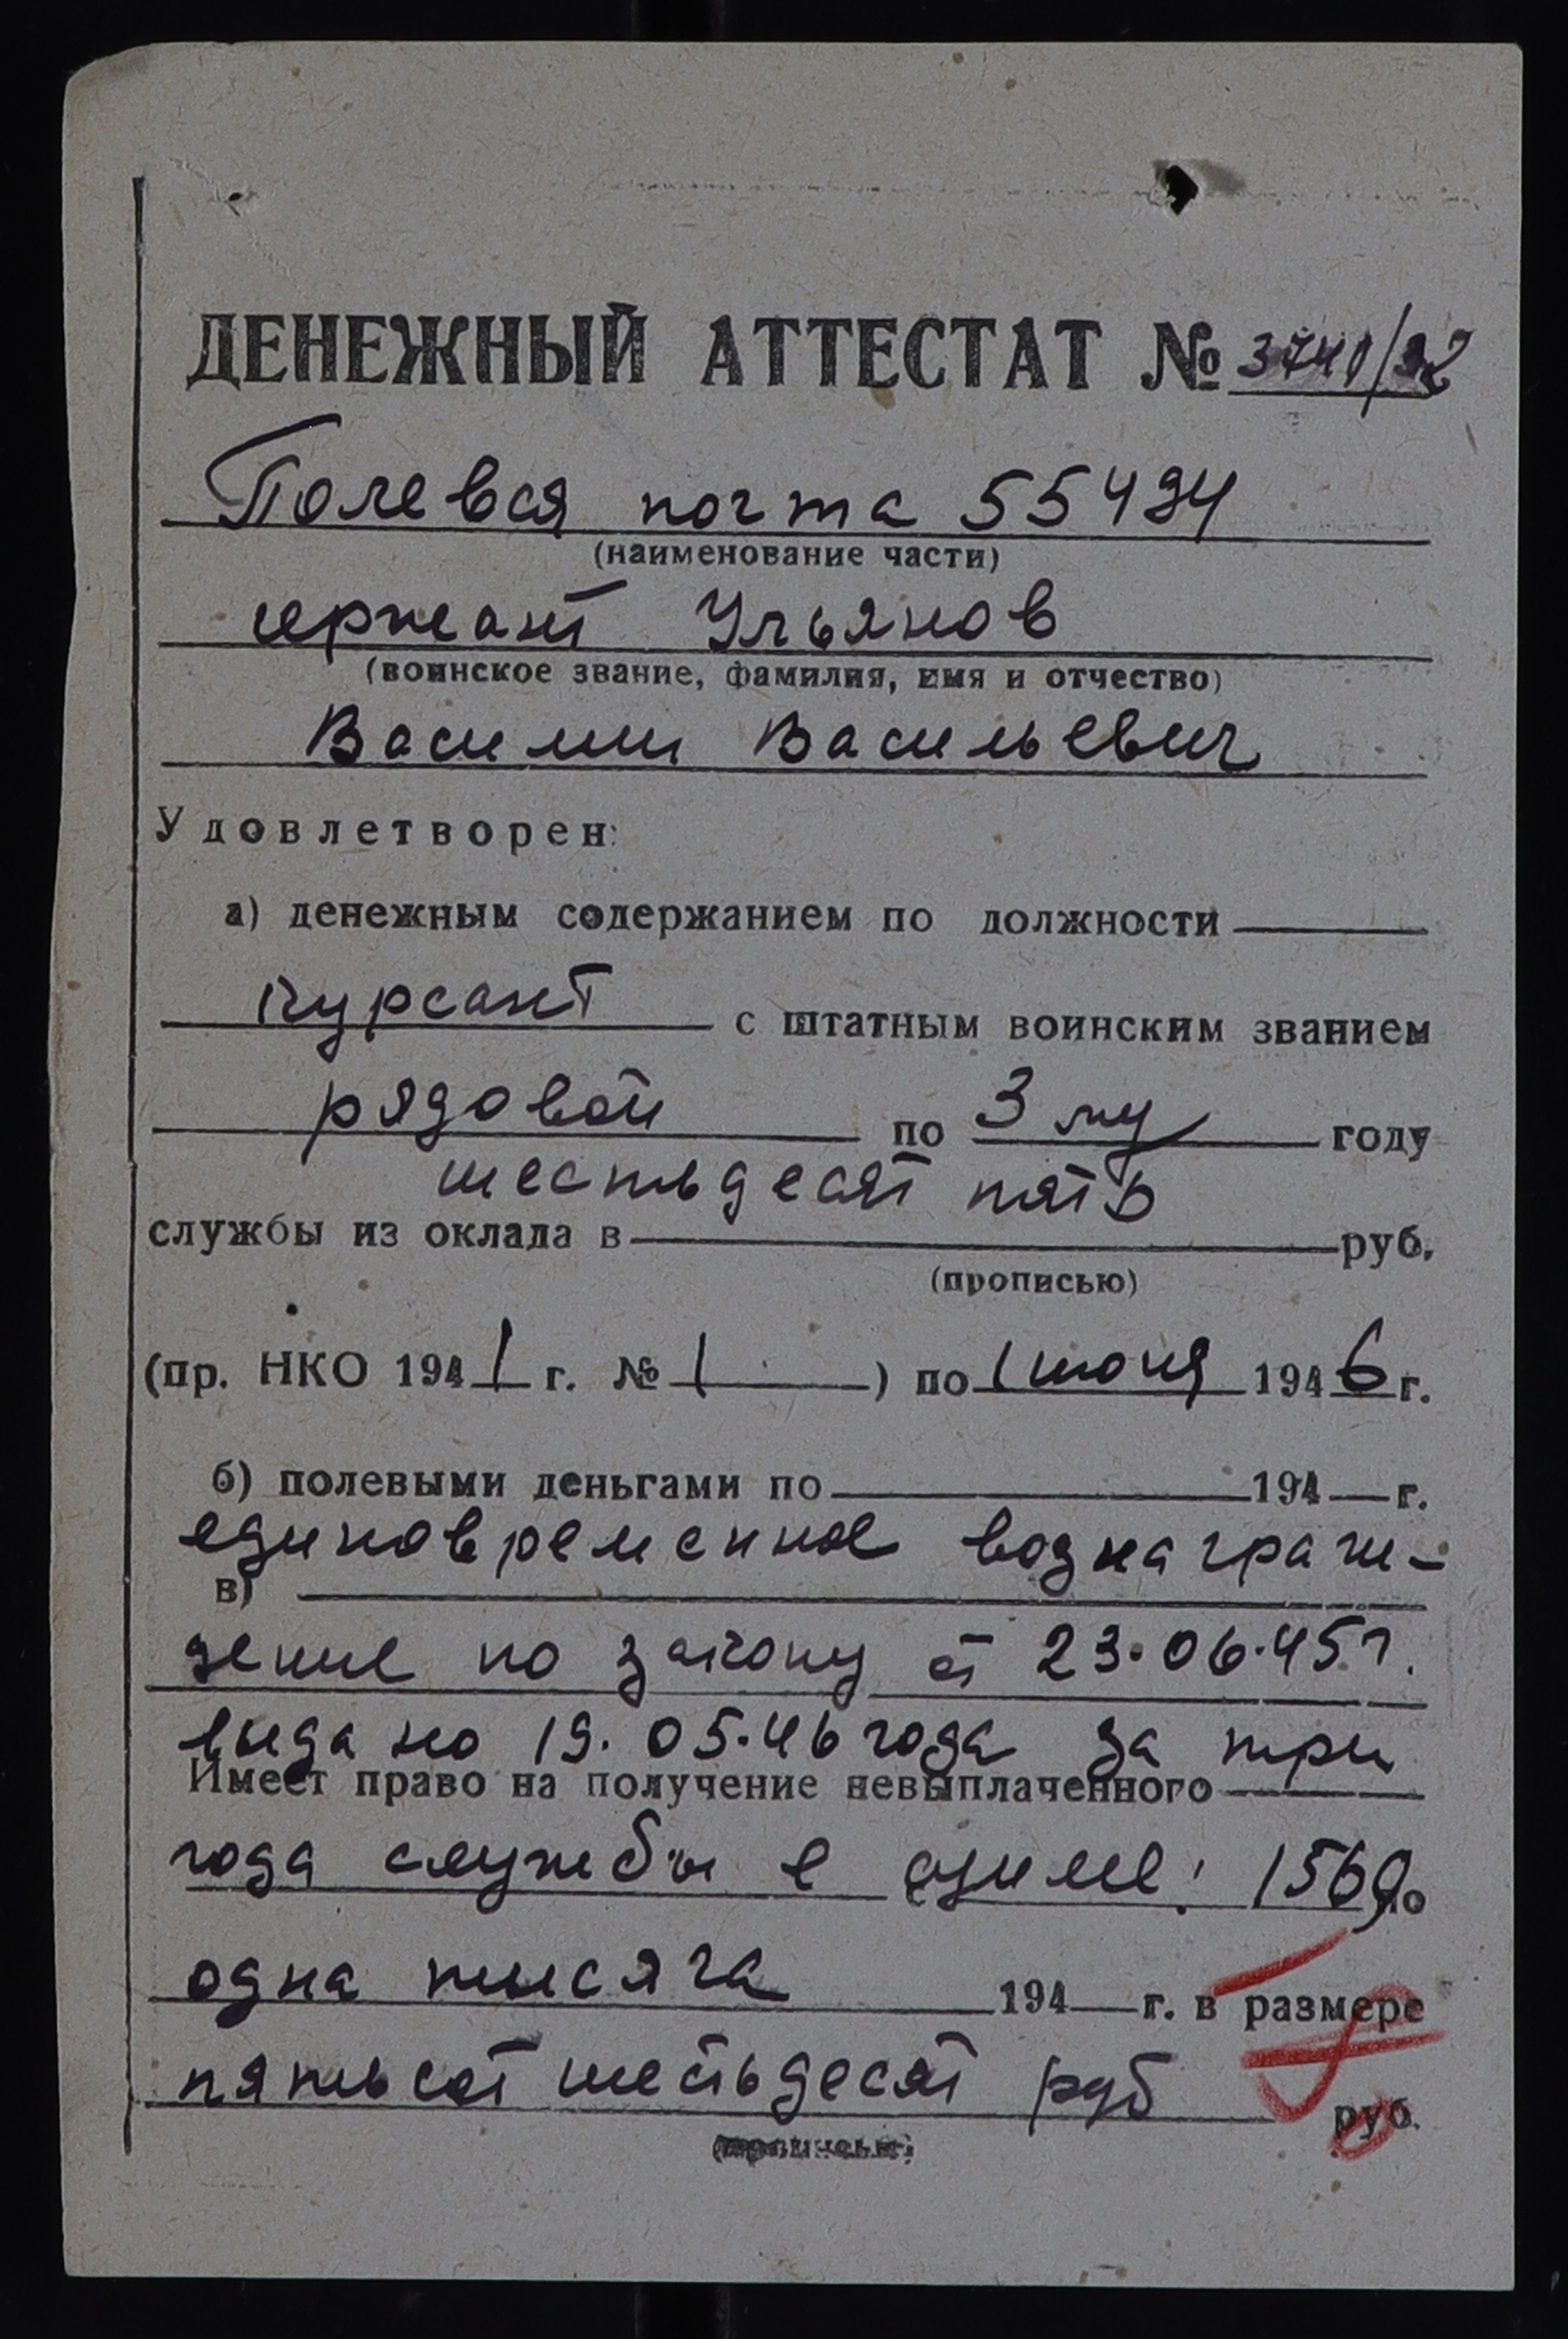 ДЕНЕЖНЫЙ АТТЕСТАТ №
Полевая почта 55494
(наименование части)
сержант Ульянов
(воинское звание, фамилия, имя и отчество)
Василий Васильевич
Удовлетворен:
а) денежным содержанием по должности
курсант с штатным воинским званием
рядовой по 3 му году
шестьдесят пять
службы из оклада в руб.
(прописью)
(пр. НКО 1941 г. № 1 ) по 1 июня 1946 г.
б) полевыми деньгами по 194 г.
единовременное вознаграж-
в)
дение по закону от 23.06.45 г.
выдано 19.05.46 года за три
Имеет право на получение невыплаченного
года службы в сумме: 1560 по
одна тысяча 194 г. в размере
пятьсот шестьдесят руб руб.
(прописью)